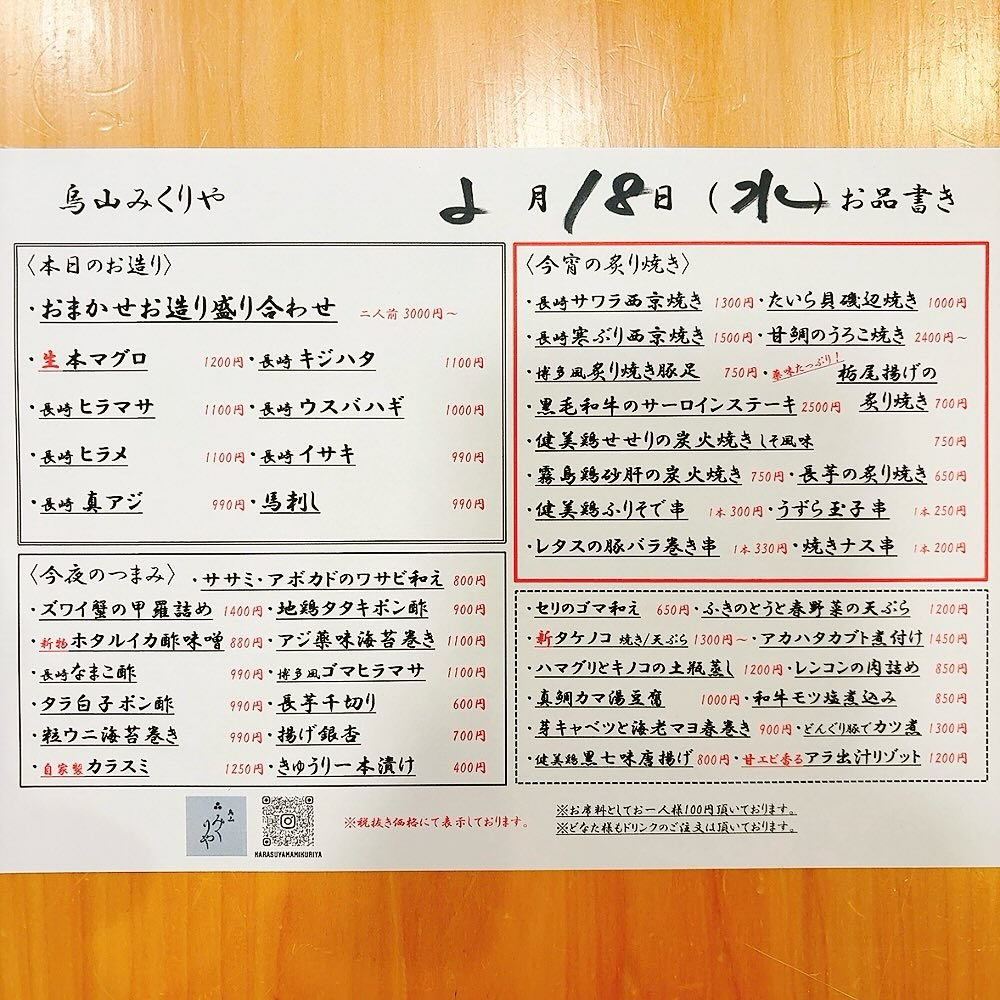 烏山みくりや
2月18日(水)お品書き
〈本日のお造り〉
・おまかせお造り盛り合わせ 二人前 3000円～
・生 本マグロ 1200円・長崎 キジハタ 1100円
・長崎 ヒラマサ 1100円・長崎 ウスバハギ 1000円
・長崎 ヒラメ 1100円・長崎 イサキ 990円
・長崎 真アジ 990円・馬刺し 990円
〈今夜のつまみ〉・ササミ・アボカドのワサビ和え 800円
・ズワイ蟹の甲羅詰め 1400円・地鶏タタキポン酢 900円
・新物ホタルイカ酢味噌 880円・アジ薬味海苔巻き 1100円
・長崎なまこ酢 990円・博多風ゴマヒラマサ 1100円
・タラ白子ポン酢 990円・長芋千切り 600円
・粒ウニ海苔巻き 990円・揚げ銀杏 700円
・自家製カラスミ 1250円・きゅうり一本漬け 400円
〈今宵の炙り焼き〉
・長崎サワラ西京焼き 1300円・たいら貝磯辺焼き 1000円
・長崎寒ぶり西京焼き 1500円・甘鯛のうろこ焼き 2400円～
・博多風炙り焼き豚足 750円・薬味たっぷり！栃尾揚げの
・黒毛和牛のサーロインステーキ 2500円 炙り焼き 700円
・健美鶏せせりの炭火焼き しそ風味 750円
・霧島鶏砂肝の炭火焼き 750円・長芋の炙り焼き 650円
・健美鶏ふりそで串 1本 300円・うずら玉子串 1本 250円
・レタスの豚バラ巻き串 1本 330円・焼きナス串 1本 200円
・セリのゴマ和え 650円・ふきのとうと春野菜の天ぷら 1200円
・新タケノコ 焼き/天ぷら 1300円～・アカハタカブト煮付け 1450円
・ハマグリとキノコの土瓶蒸し 1200円・レンコンの肉詰め 850円
・真鯛カマ湯豆腐 1000円・和牛モツ塩煮込み 850円
・芽キャベツと海老マヨ春巻き 900円・どんぐり豚でカツ煮 1300円
・健美鶏黒七味唐揚げ 800円・甘エビ香るアラ出汁リゾット 1200円
烏山
みくりや
KARASUYAMAMIKURIYA
※税抜き価格にて表示しております。
※お席料としてお一人様100円頂いております。
※どなた様もドリンクのご注文は頂いております。